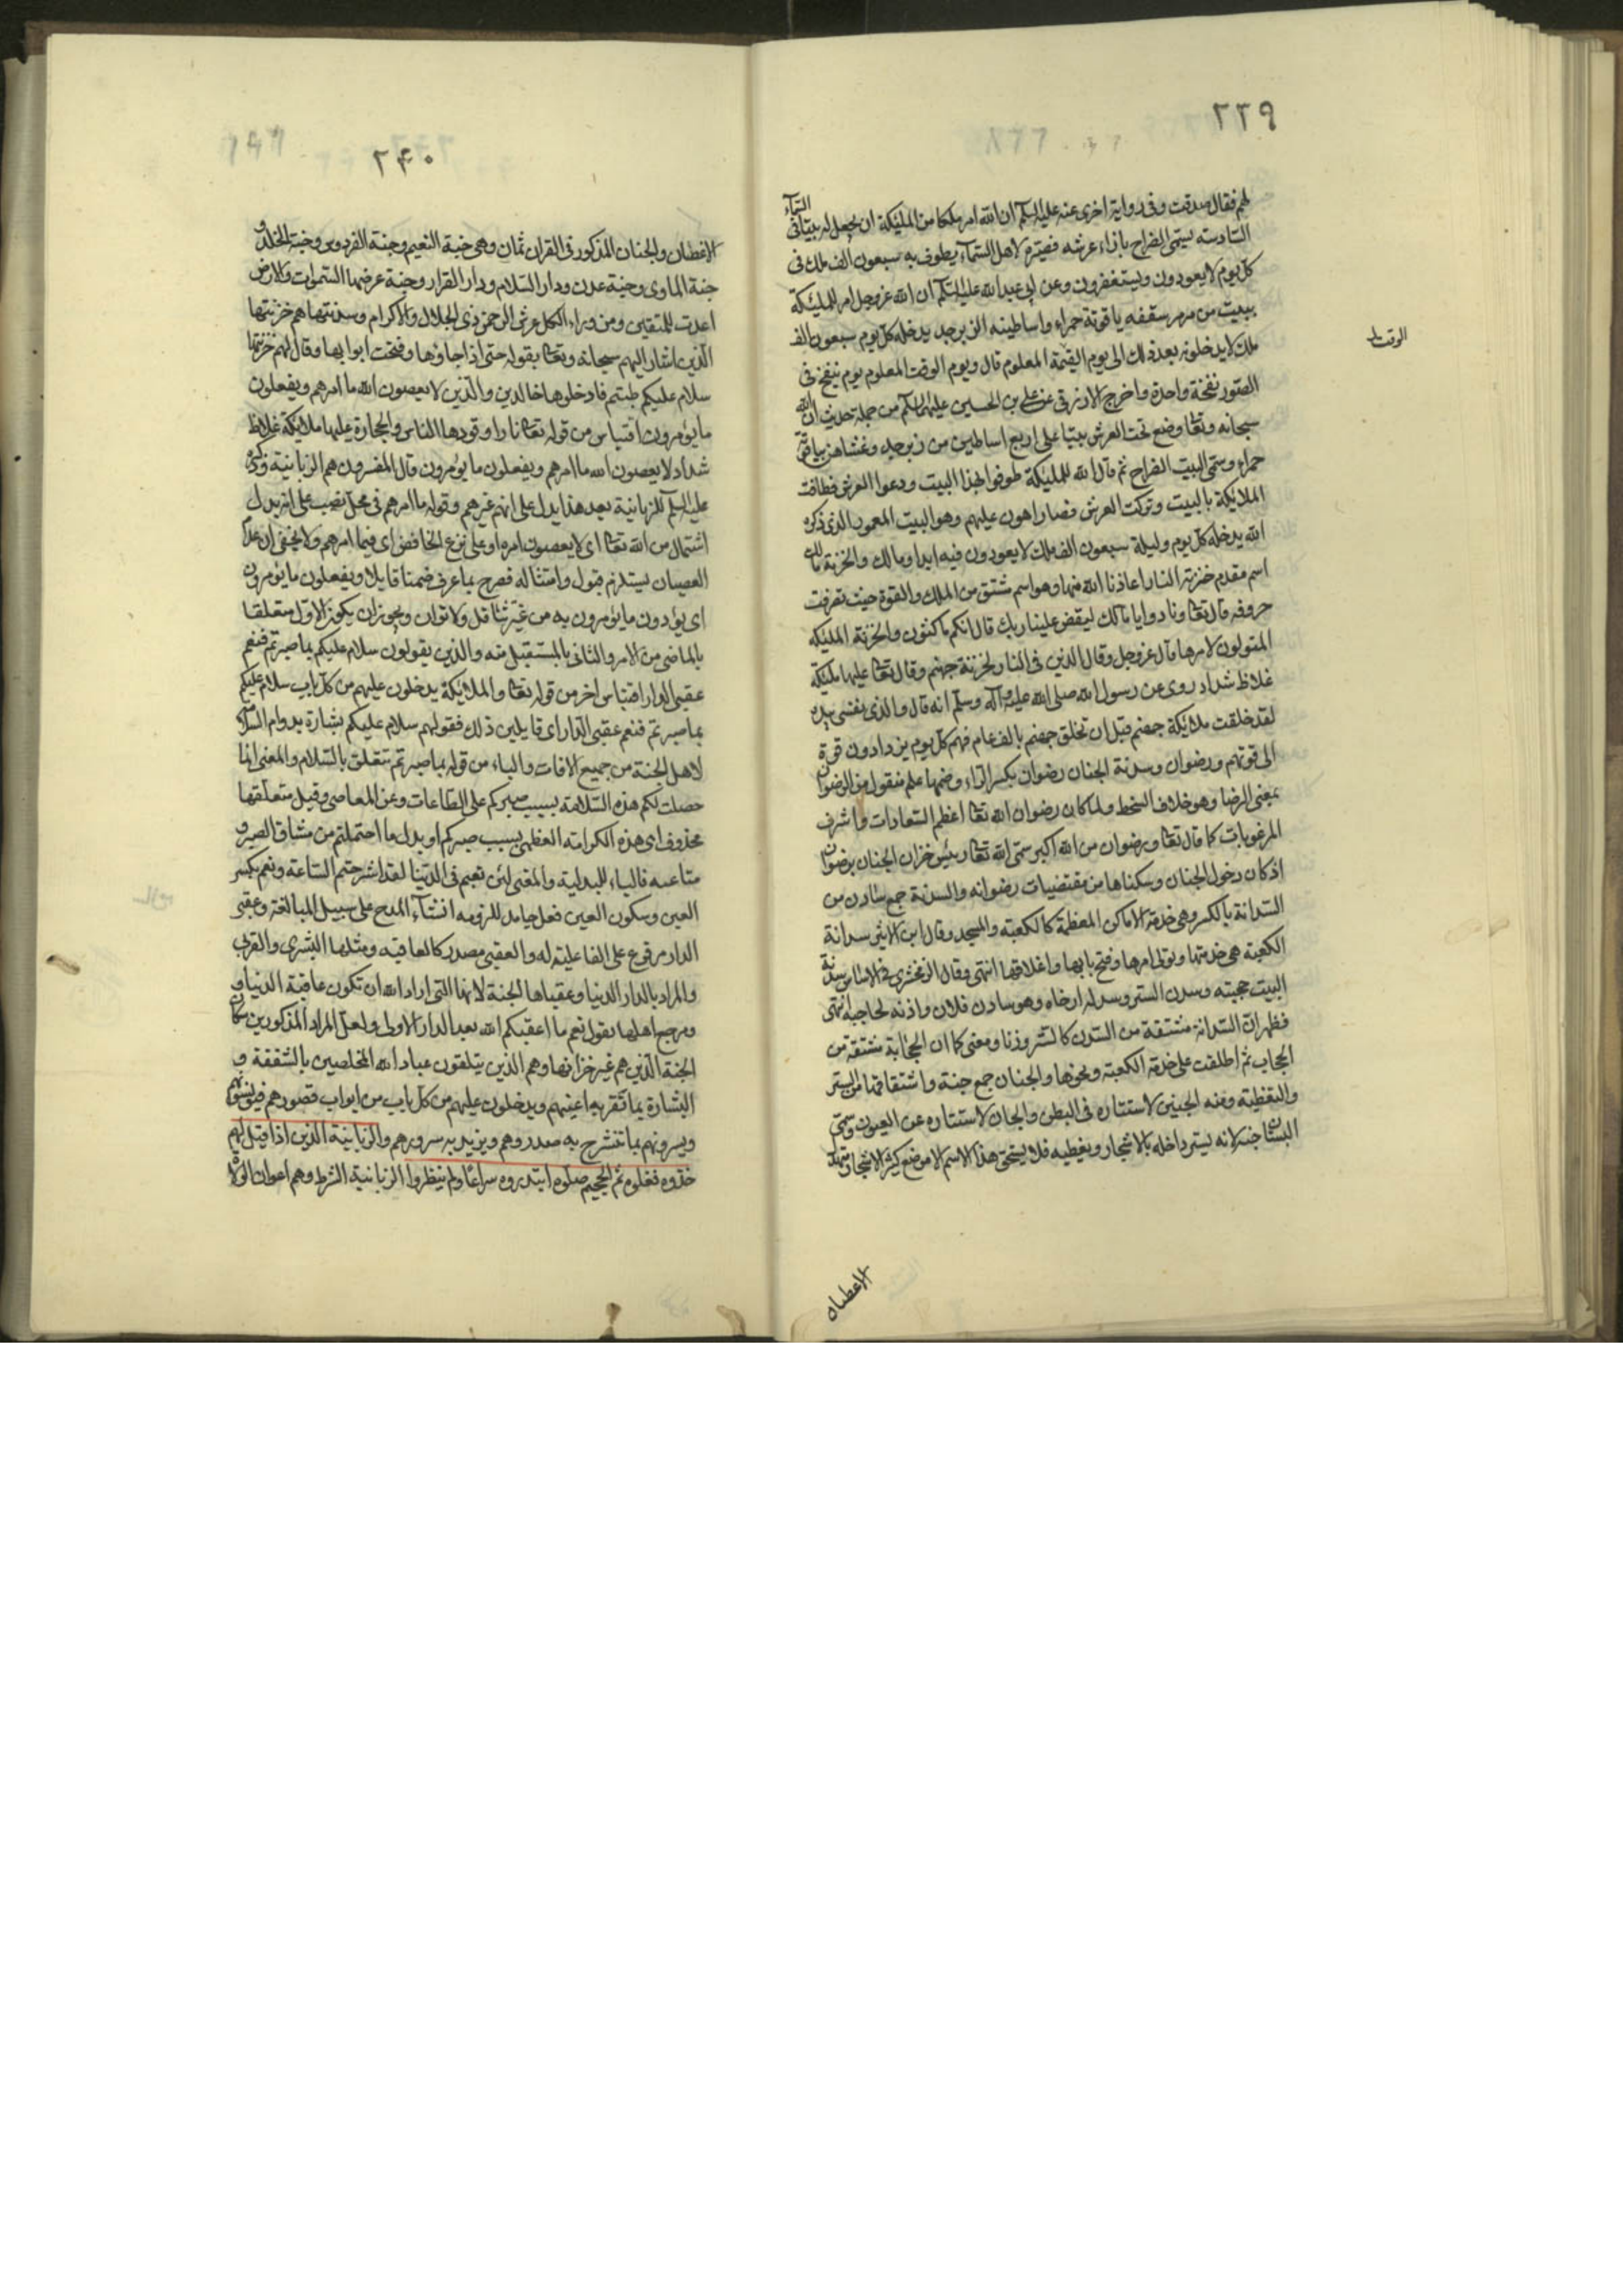 ٢٣٩
لهم فقال صدقت وفى رواية اخرى عنه عليه السلم ان الله امر ملكا من المليكة ان يجعل له بيتا فى السماء
السادسة يسمى الضراح بازاء عرشه فصيره لاهل السماء يطوف به سبعون الف ملك فى
كل يوم لا يعودون ويستغفرون وعن ابى عبد الله عليه السلم ان الله عز وجل امر للمليكة
ببيت من مرمر سقفه ياقوتة حمراء واساطينه الزبرجد يدخله كل يوم سبعون الف
ملك لا يدخلونه بعد ذلك الى يوم القيمة المعلوم قال ويوم الوقت المعلوم يوم ينفخ فى
الوقت
الصور نفخة واحدة واخرج الازرقى عن على بن الحسين عليهما السلم من جملة حديث ان الله
سبحانه وتعا وضع تحت العرش بيتا على اربع اساطين من زبرجد وغشاهن بياقوتة
حمراء وسمى البيت الضراح ثم قال الله للمليكة طوفوا بهذا البيت ودعوا العرش فطافت
الملائكة بالبيت وتركت العرش فصار اهون عليهم وهو البيت المعمور الذى ذكره
الله يدخله كل يوم وليلة سبعون الف ملك لا يعودون فيه ابدا ومالك والخزنة مالك
اسم مقدم خزنة النار اعاذنا الله منها وهو اسم مشتق من الملك والقوة حيث تصرفت
حروفه قال تعا ونادوا يا مالك ليقض علينا ربك قال انكم ماكثون والخزنة المليكة
المتولون لامرها قال عز وجل وقال الذين فى النار لخزنة جهنم وقال تعا عليها مليكة
غلاظ شداد روى عن رسول الله صلى الله عليه وآله وسلم انه قال والذى نفسى بيده
لقد خلقت ملائكة جهنم قبل ان تخلق جهنم بالف عام فهم كل يوم يزدادون قوة
الى قوتهم ورضوان وسدنة الجنان رضوان بكسر الراء وضمها علم منقول من الرضوان
بمعنى الرضا وهو خلاف السخط ولما كان رضوان الله تعا اعظم السعادات واشرف
المرغوبات كما قال تعا ورضوان من الله اكبر سمى الله تعا رئيس خزان الجنان برضوان
اذ كان دخول الجنان وسكناها من مقتضيات رضوانه والسدنة جمع سادن من
السدانة بالكسر وهى خدمة الاماكن المعظمة كالكعبة والمسجد وقال ابن الاثير سدانة
الكعبة هى خدمتها وتولى امرها وفتح بابها واغلاقها انتهى وقال الزمخشرى فى الاساس سدنة
البيت حجبته وسدن الستر وسدله ارخاه وهو سادن فلان واذنه لحاجبه انتهى
فظهر ان السدانة مشتقة من السدن كالستر وزنا ومعنى كما ان الحجابة مشتقة من
الحجاب ثم اطلقت على خدمة الكعبة ونحوها والجنان جمع جنة واشتقاقها من الستر
والتغطية ومنه الجنين لاستتاره فى البطن والجان لاستتاره عن العيون وسمى
البستان جنة لانه يستر داخله بالاشجار ويغطيه فلا يستحق هذا الاسم الا موضع كثير الاشجار متهدلة
الاغصان
٢٤٠
الاغصان والجنان المذكور فى القران ثمان وهى جنة النعيم وجنة الفردوس وجنة الخلد و
جنة الماوى وجنة عدن ودار السلام ودار القرار وجنة عرضها السموات والارض
اعدت للمتقين ومن وراء الكل عرش الرحمن ذى الجلال والاكرام وسدنتها هم خزنتها
الذين اشار اليهم سبحانه وتعا بقوله حتى اذا جاؤها وفتحت ابوابها وقال لهم خزنتها
سلام عليكم طبتم فادخلوها خالدين والذين لا يعصون الله ما امرهم ويفعلون
ما يؤمرون اقتباس من قوله تعا نارا وقودها الناس والحجارة عليها ملائكة غلاظ
شداد لا يعصون الله ما امرهم ويفعلون ما يؤمرون قال المفسرون هم الزبانية وذكره
عليه السلم للزبانية بعد هذا يدل على انهم غيرهم وقوله ما امرهم فى محل نصب على انه بدل
اشتمال من الله تعا اى لا يعصون امره او على نزع الخافض اى فيما امرهم ولا يخفى ان عدم
العصيان يستلزم قبول وامتثاله فصرح بما عرف ضمنا قايلا ويفعلون ما يؤمرون
اى يؤدون ما يؤمرون به من غير تثاقل ولا توان ويجوز ان يكون الاول متعلقا
بالماضى من الامر والثانى بالمستقبل منه والذين يقولون سلام عليكم بما صبرتم فنعم
عقبى الدار اقتباس اخر من قوله تعا والملائكة يدخلون عليهم من كل باب سلام عليكم
بما صبرتم فنعم عقبى الدار اى قايلين ذلك فقولهم سلام عليكم بشارة بدوام السلامة
لاهل الجنة من جميع الافات والباء من قوله بما صبرتم تتعلق بالسلام والمعنى انما
حصلت لكم هذه السلامة بسبب صبركم على الطاعات وعن المعاصى وقيل متعلقها
محذوف اى هذه الكرامة العظمى بسبب صبركم او بدل ما احتملتم من مشاق الصبر و
متاعبه فالباء للبدلية والمعنى لئن تعبتم فى الدنيا لقد استرحتم الساعة ونعم بكسر
العين وسكون العين فعل جامد للزومه انشاء المدح على سبيل المبالغة وعقبى
الدار مرفوع على الفاعلية له والعقبى مصدر كالعاقبة ومثلها البشرى والقربى
والمراد بالدار الدنيا وعقباها الجنة لانها التى اراد الله ان تكون عاقبة الدنيا و
مرجع اهلها يقول نعم ما اعقبكم الله بعد الدار الاولى ولعل المراد المذكورين سكان
الجنة الذين هم غير خزانها وهم الذين يتلقون عباد الله المخلصين بالشفقة و
البشارة بما تقر به اعينهم ويدخلون عليهم من كل باب من ابواب قصورهم
ويسرونهم بما تنشرح به صدورهم ويزيد به سرورهم والزبانية الذين اذا قيل لهم
خذوه فغلوه ثم الجحيم صلوه ابتدروه سراعا ولم ينظروا الزبانية الشرط وهم اعوان الولاة